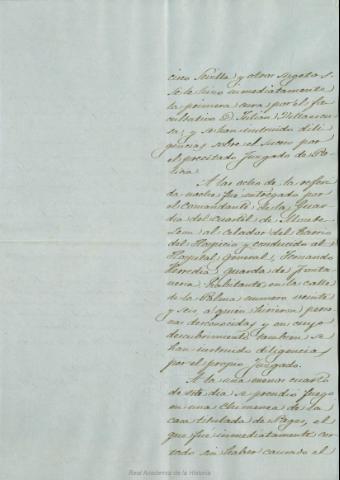 cisco Sevilla y otros sugetos.
Se le hizo inmediatamente
la primera cura por el fa-
cultativo D. Julian Villaescu-
sa; y se han instruido dili-
gencias sobre el suceso por
el precitado Juzgado de Po-
licia.
A las ocho de la referi-
da noche fue entregado por
el Comandante de la Guar-
dia del Cuartel de
al Celador del Barrio
del Hospicio y conducido al
Hospital general, Fernando
Heredia, guarda de
habitante en la calle
de la Palma numero veinte
y seis a quien hirieron perso-
nas desconocidas, y en cuyo
descubrimiento tambien se
han instruido diligencias
por el propio Juzgado.
A la una menos cuarto
de este dia se prendio fuego
en una chimenea de la
casa titulada de Pages, el
que fué inmediatamente cor-
tado sin haber causado el
Real Academia de la Historia